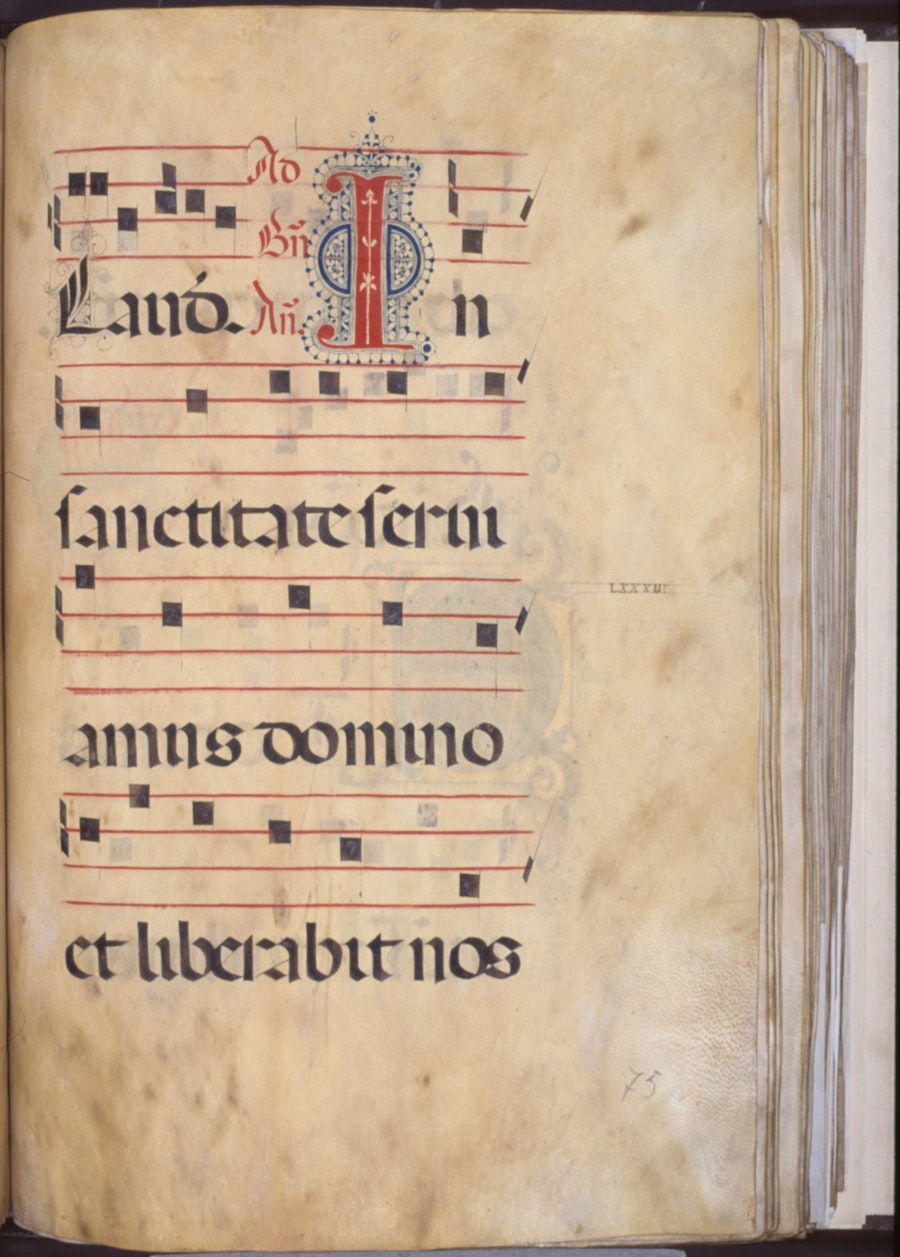 Ad
Bn̄
Laud. An̄. In
sanctitate servi
amus domino
et liberabit nos
LXXXIII
75